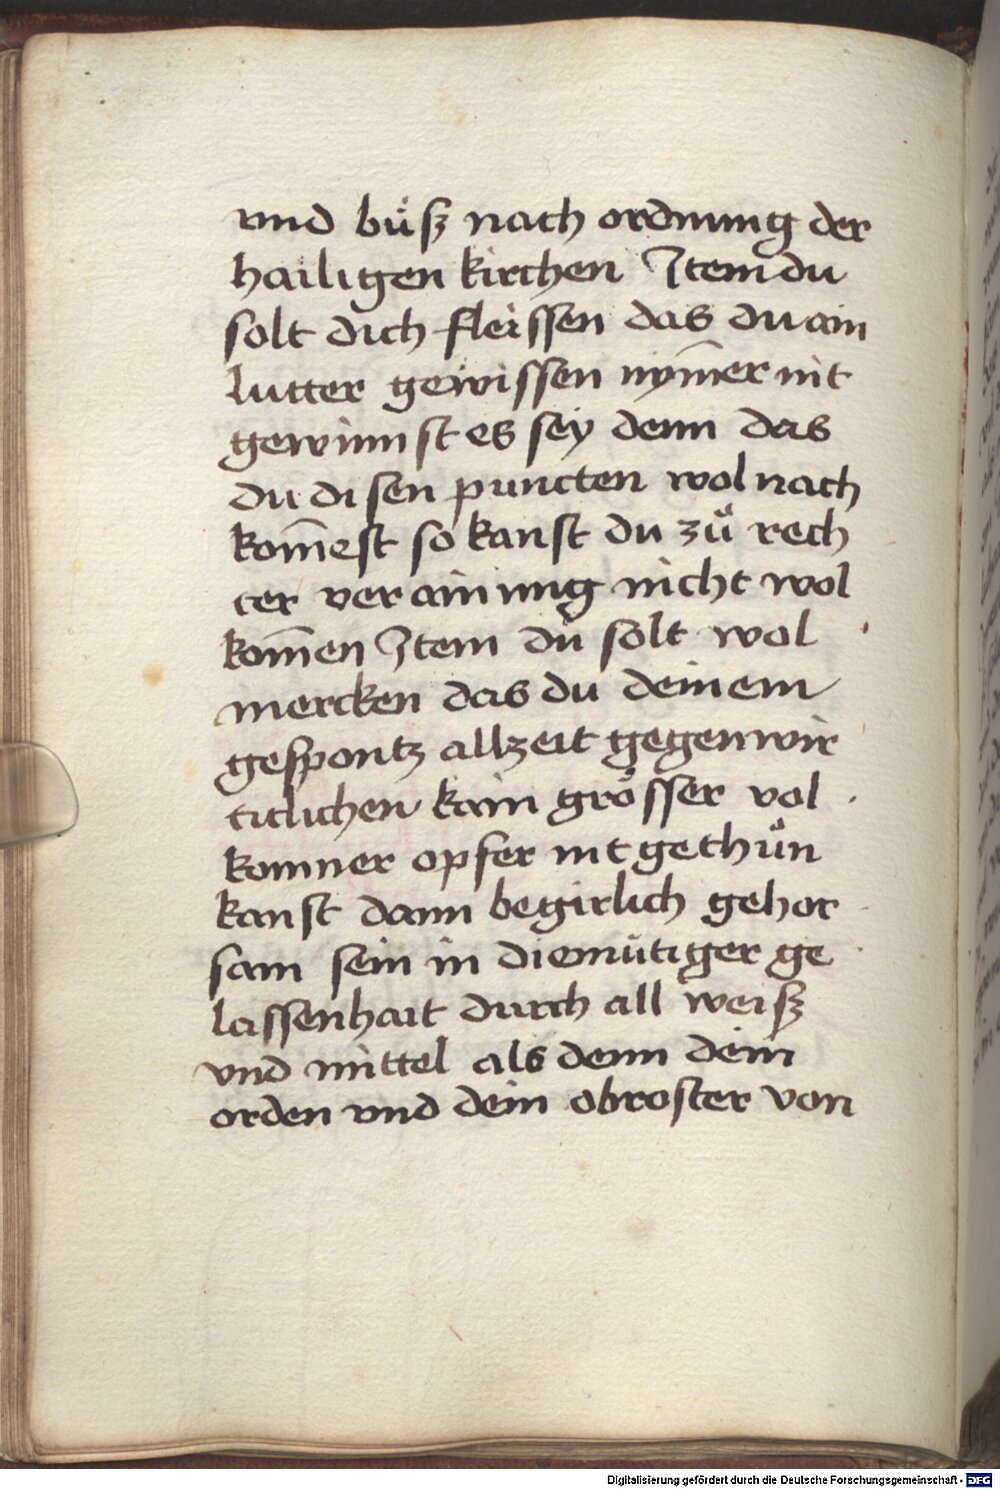 vnd bu̐ſz nach ordnung der
hailigen kirchen Item du
solt dich fleissen das du ain
lutter gewissen nym̄er nit
gewinnst es sey denn das
du disen puncten wol nach
kom̄est so kanst du zů rech
ter verainung nicht wol
kom̄en Item du solt wol
mercken das du deinem
gespontz allzeit gegenwir
titlichen kain grösser vol
komner opfer nit gethůn
kanst dann begirlich gehor
sam sein in diemütiger ge
lassenhait durch all weisz
vnd mittel als denn dein
orden vnd dein obroster von
Digitalisierung gefördert durch die Deutsche Forschungsgemeinschaft - DFG